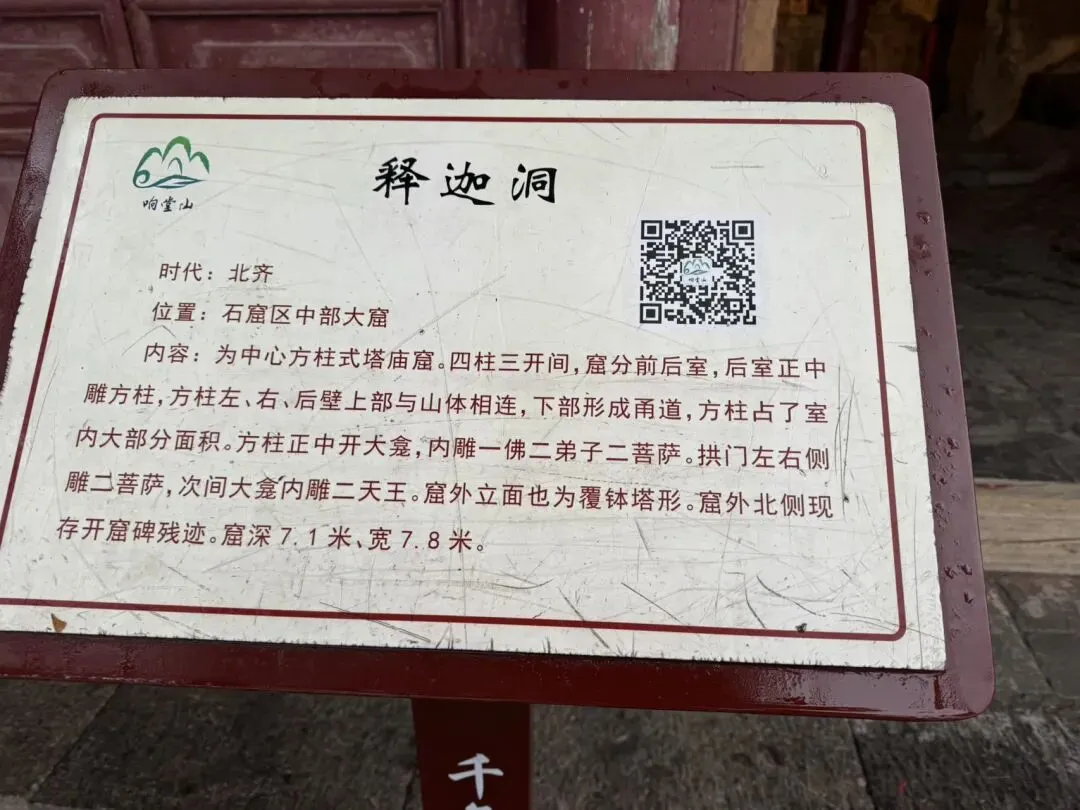 响堂山
释迦洞
响堂山
时代：北齐
位置：石窟区中部大窟
内容：为中心方柱式塔庙窟。四柱三开间，窟分前后室，后室正中
雕方柱，方柱左、右、后壁上部与山体相连，下部形成甬道，方柱占了室
内大部分面积。方柱正中开大龛，内雕一佛二弟子二菩萨。拱门左右侧
雕二菩萨，次间大龛内雕二天王。窟外立面也为覆钵塔形。窟外北侧现
存开窟碑残迹。窟深7.1米、宽7.8米。
千